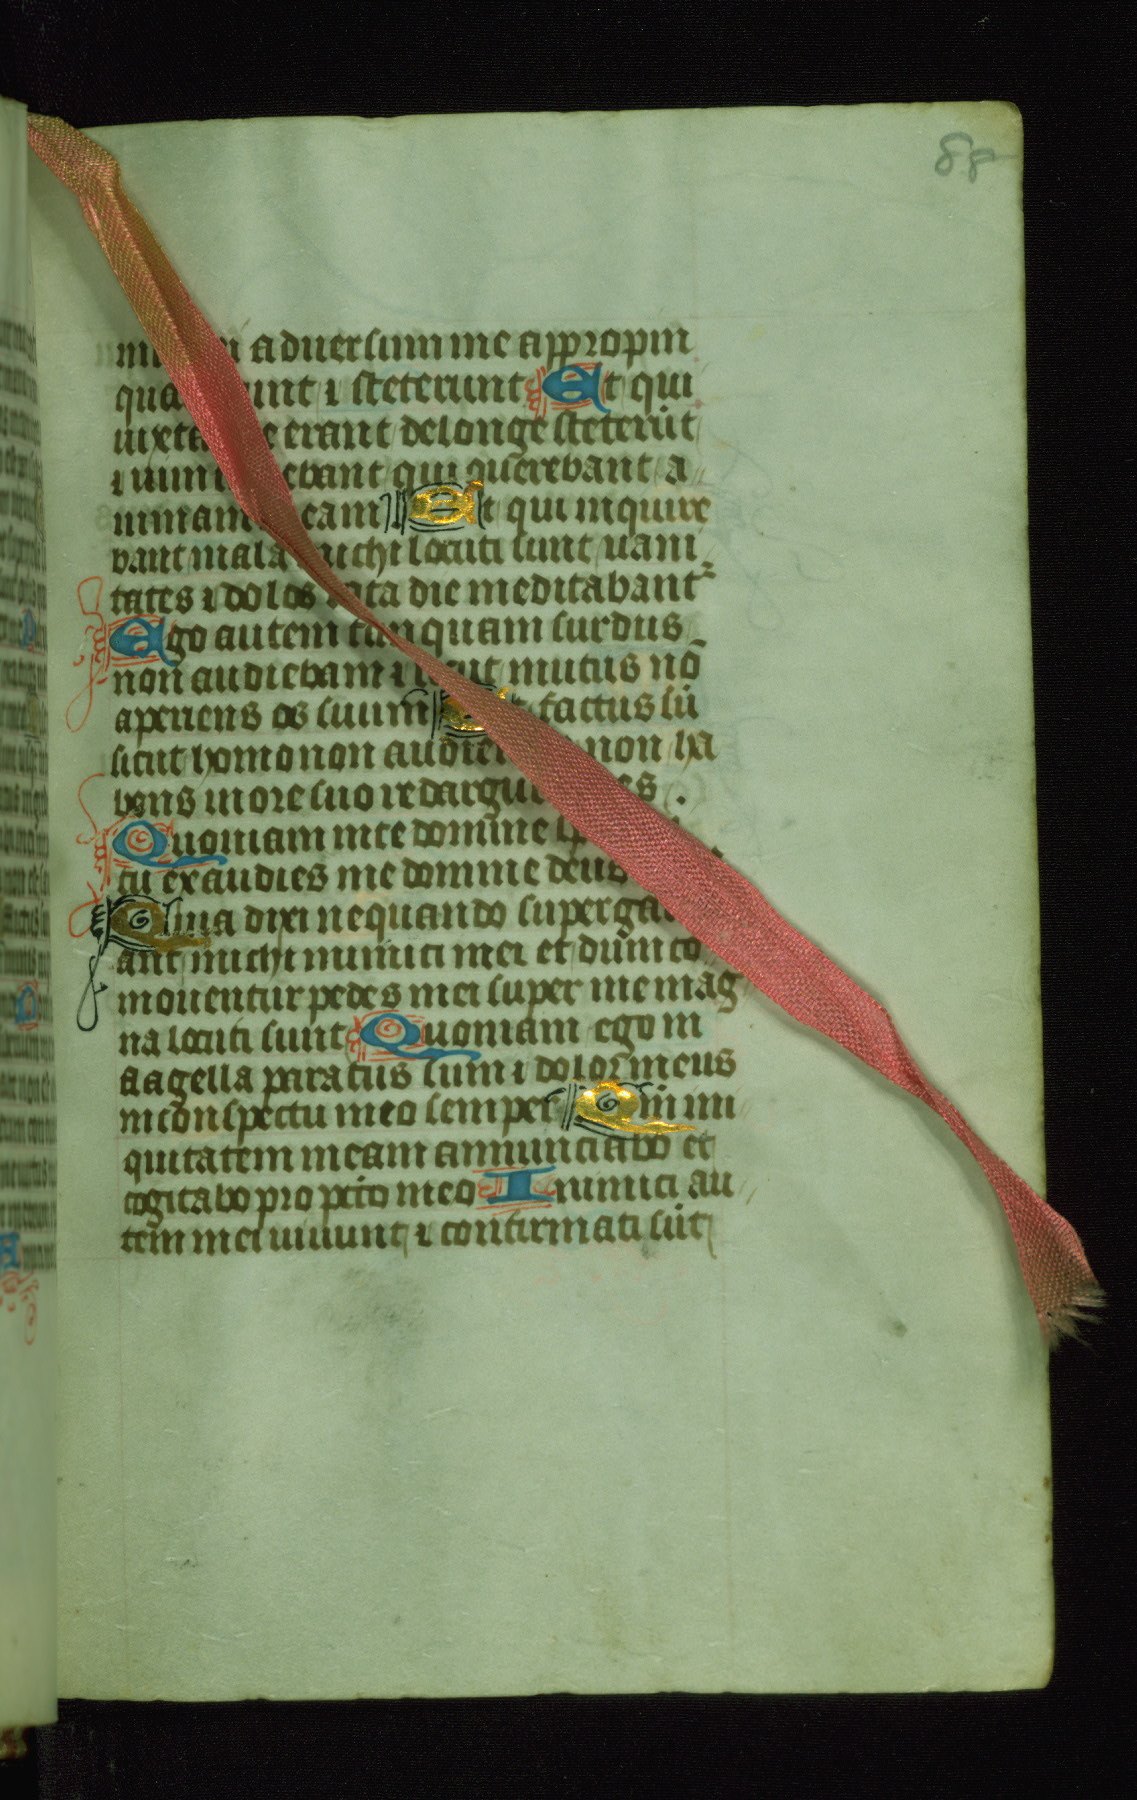 88
mei aduersum me appropin
qua unt ⁊ steterunt Et qui
iuxta e erant de longe steterūt
⁊ uim ebant qui querebant a
nimam eam Et qui inquire
bant mala michi locuti sunt uani
tates ⁊ dolos tota die meditabant᷑
Ego autem tanquam surdus
non audiebam ⁊ sicut mutus nō
aperiens os suum Et factus sū
sicut homo non audie non ha
bens in ore suo redargu es .
Quoniam in te domine sp
tu exaudies me domine deus
Quia dixi nequando superga
ant michi inimici mei et dum co
mouentur pedes mei super me mag
na locuti sunt Quoniam ego in
flagella paratus sum ⁊ dolor meus
in conspectu meo semper Qm̄ ini
quitatem meam annunciabo et
cogitabo pro pcc̄o meo Inimici au
tem mei uiuunt ⁊ confirmati sūt